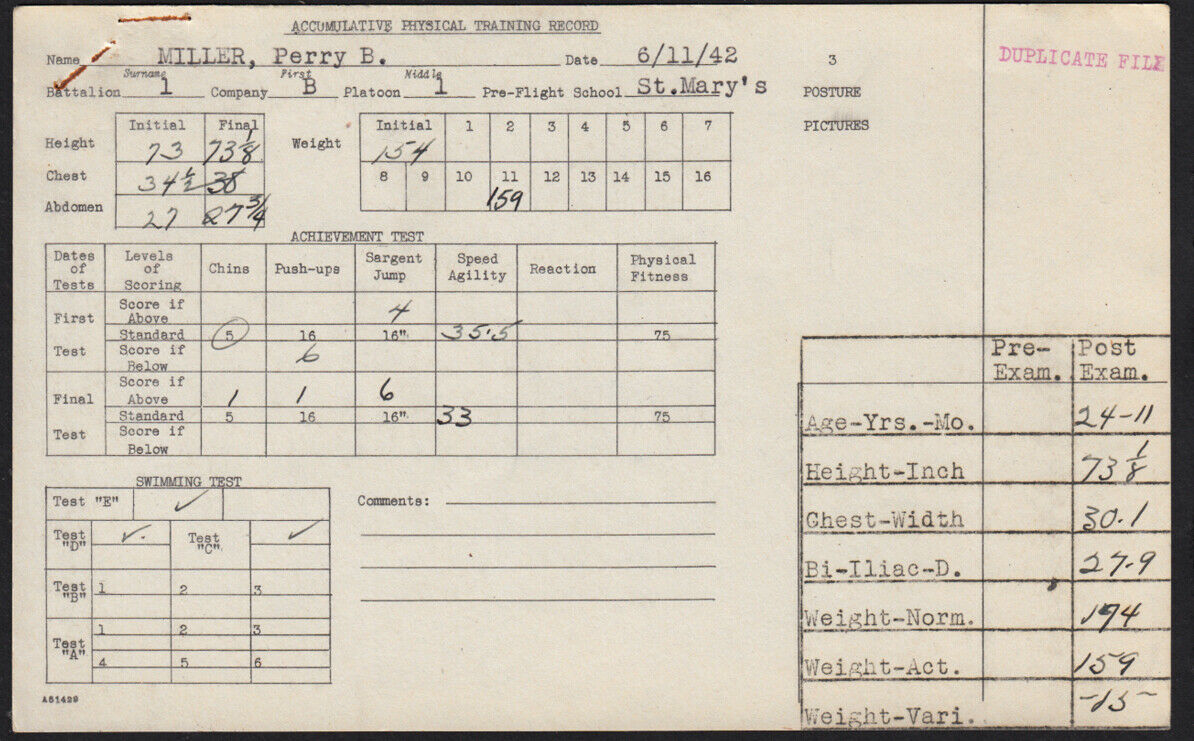 ACCUMULATIVE PHYSICAL TRAINING RECORD
Name MILLER, Perry B. Date 6/11/42 3
Surname First Middle
Battalion 1 Company B Platoon 1 Pre-Flight School St.Mary's POSTURE
PICTURES
DUPLICATE FILE
Initial Final
Height 73 73 1/8
Chest 34 1/2 38
Abdomen 27 27 3/4
Weight Initial 1 2 3 4 5 6 7
154
8 9 10 11 12 13 14 15 16
159
ACHIEVEMENT TEST
Dates of Tests Levels of Scoring Chins Push-ups Sargent Jump Speed Agility Reaction Physical Fitness
First Test
Score if Above 4
Standard 5 16 16" 35.5 75
Score if Below 6
Final Test
Score if Above 1 1 6
Standard 5 16 16" 33 75
Score if Below
SWIMMING TEST
Test "E" ✓
Test "D" ✓. Test "C" ✓
Test "B" 1 2 3
Test "A" 1 2 3
4 5 6
A51429
Comments:
Pre-Exam. Post Exam.
Age-Yrs.-Mo. 24-11
Height-Inch 73 1/8
Chest-Width 30.1
Bi-Iliac-D. 27.9
Weight-Norm. 174
Weight-Act. 159
Weight-Vari. -15-